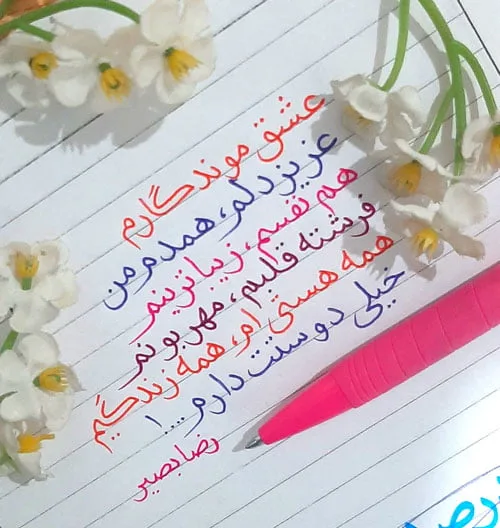 عشق موندگارم
عزیز دلم، همدم من
هم نفسم، زیباترینم
فرشته قلبم، مهربونم
همه هستی ام، همه زندگیم
خیلی دوستت دارم....!
رضا بصیر